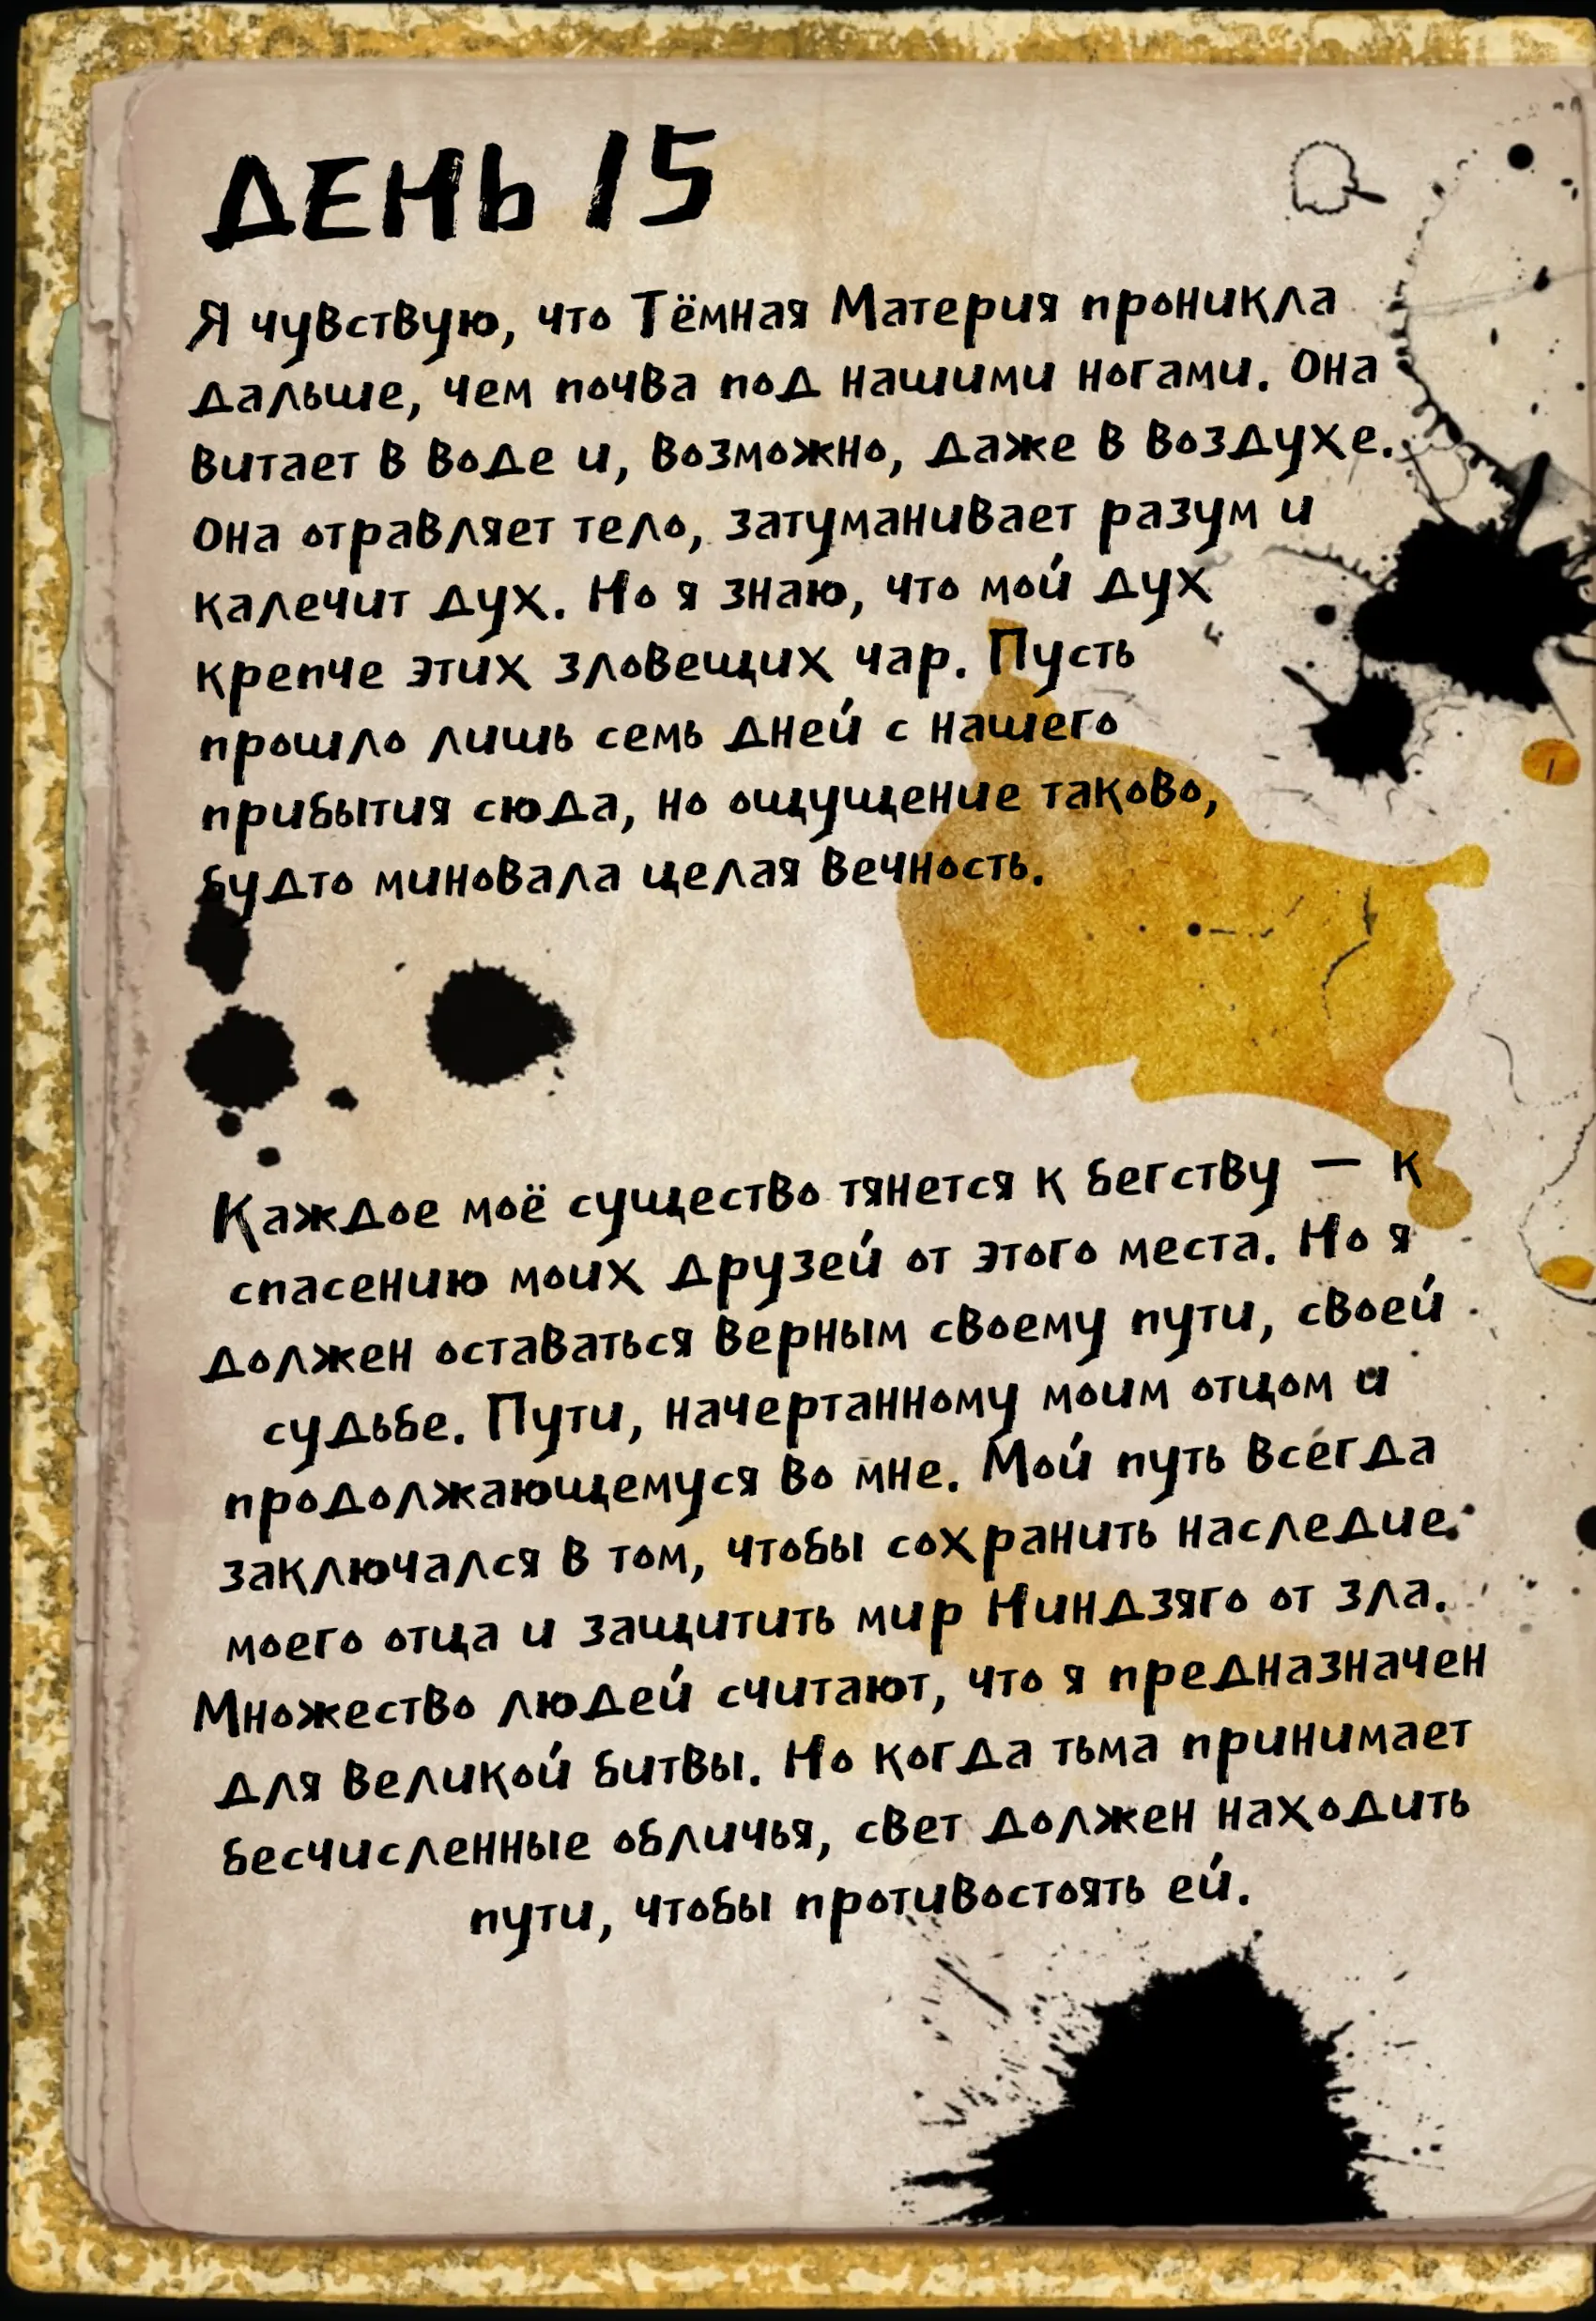 ДЕНЬ 15
Я чувствую, что Тёмная Материя проникла
дальше, чем почва под нашими ногами. Она
витает в воде и, возможно, даже в воздухе.
Она отравляет тело, затуманивает разум и
калечит дух. Но я знаю, что мой дух
крепче этих зловещих чар. Пусть
прошло лишь семь дней с нашего
прибытия сюда, но ощущение таково,
будто миновала целая вечность.
Каждое моё существо тянется к бегству — к
спасению моих друзей от этого места. Но я
должен оставаться верным своему пути, своей
судьбе. Пути, начертанному моим отцом и
продолжающемуся во мне. Мой путь всегда
заключался в том, чтобы сохранить наследие
моего отца и защитить мир Ниндзяго от зла.
Множество людей считают, что я предназначен
для великой битвы. Но когда тьма принимает
бесчисленные обличья, свет должен находить
пути, чтобы противостоять ей.